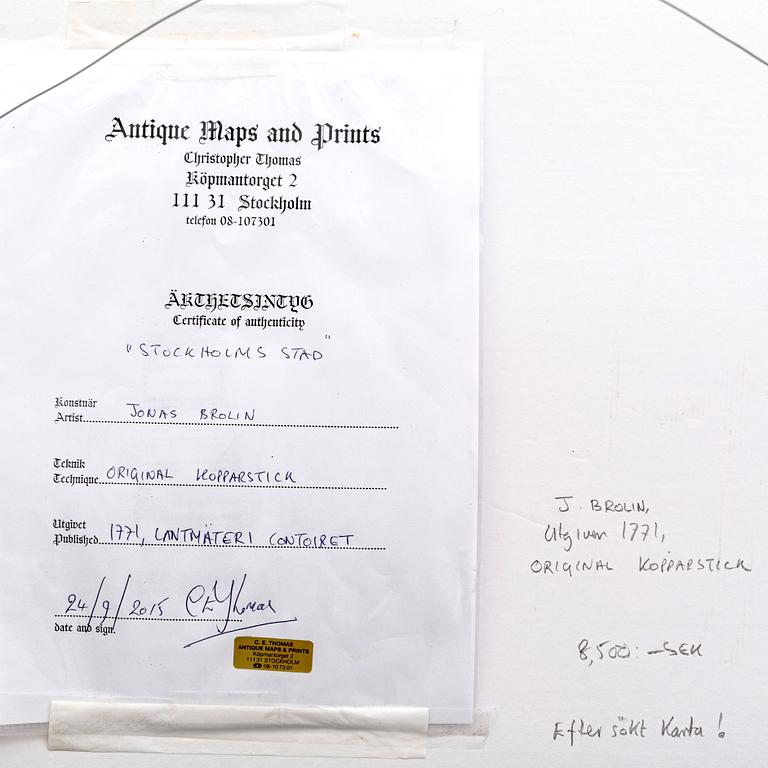 Antique Maps and Prints
Christopher Thomas
Köpmantorget 2
111 31 Stockholm
telefon 08-107301
ÄKTHETSINTYG
Certificate of authenticity
"STOCKHOLMS STAD"
Konstnär
Artist JONAS BROLIN
Teknik
Technique ORIGINAL KOPPARSTICK
Utgivet
Published 1771, LANTMÄTERI CONTOIRET
24/9/2015 CEThomas
date and sign.
C. E. THOMAS
ANTIQUE MAPS & PRINTS
Köpmantorget 2
111 31 STOCKHOLM
08-10 73 01
J. BROLIN,
Utgiven 1771,
ORIGINAL KOPPARSTICK
8,500:- SEK
Eftersökt Karta!